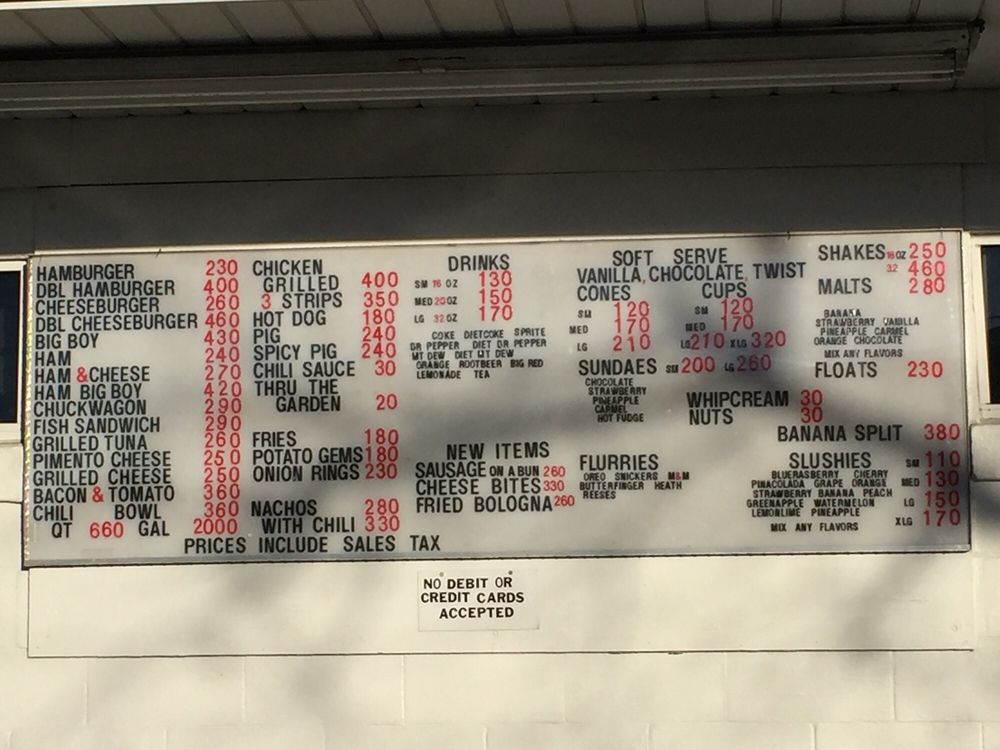 HAMBURGER 230
DBL HAMBURGER 400
CHEESEBURGER 260
DBL CHEESEBURGER 460
BIG BOY 430
HAM 240
HAM & CHEESE 270
HAM BIG BOY 420
CHUCKWAGON 290
FISH SANDWICH 290
GRILLED TUNA 260
PIMENTO CHEESE 250
GRILLED CHEESE 250
BACON & TOMATO 360
CHILI BOWL 360
QT 660 GAL 2000
CHICKEN
GRILLED 400
3 STRIPS 350
HOT DOG 180
PIG 240
SPICY PIG 240
CHILI SAUCE 30
THRU THE
GARDEN 20
FRIES 180
POTATO GEMS 180
ONION RINGS 230
NACHOS 280
WITH CHILI 330
PRICES INCLUDE SALES TAX
DRINKS
SM 16 OZ 130
MED 20 OZ 150
LG 32 OZ 170
COKE DIETCOKE SPRITE
DR PEPPER DIET DR PEPPER
MT DEW DIET MT DEW
ORANGE ROOTBEER BIG RED
LEMONADE TEA
NEW ITEMS
SAUSAGE ON A BUN 260
CHEESE BITES 330
FRIED BOLOGNA 260
SOFT SERVE
VANILLA, CHOCOLATE, TWIST
CONES
SM 120
MED 170
LG 210
CUPS
SM 120
MED 170
LG 210 XLG 320
SUNDAES SM 200 LG 260
CHOCOLATE
STRAWBERRY
PINEAPPLE
CARMEL
HOT FUDGE
WHIPCREAM 30
NUTS 30
FLURRIES
OREO SNICKERS M&M
BUTTERFINGER HEATH
REESES
SHAKES 16 OZ 250
32 460
MALTS 280
BANANA
STRAWBERRY VANILLA
PINEAPPLE CARMEL
ORANGE CHOCOLATE
MIX ANY FLAVORS
FLOATS 230
BANANA SPLIT 380
SLUSHIES SM 110
BLUERASBERRY CHERRY
PINACOLADA GRAPE ORANGE MED 130
STRAWBERRY BANANA PEACH
GREENAPPLE WATERMELON LG 150
LEMONLIME PINEAPPLE
MIX ANY FLAVORS XLG 170
NO DEBIT OR
CREDIT CARDS
ACCEPTED